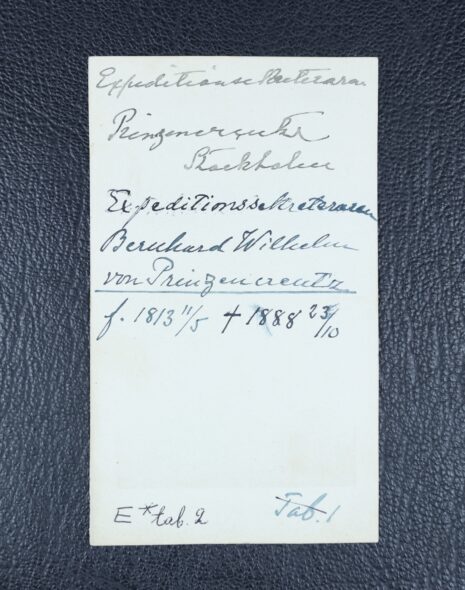 Expeditionssekreteraren
Prinzencreutz
Stockholm
Expeditionssekreteraren
Bernhard Wilhelm
von Prinzencreutz
f. 1813 11/5 † 1888 23/10
E * tab. 2
Tab. 1